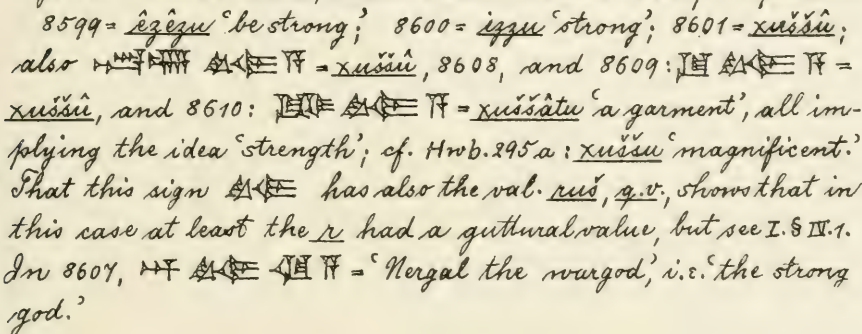 8599 = êzêzu 'be strong;' 8600 = izzu 'strong'; 8601 = xuššû;
also = xuššû, 8608, and 8609: =
xuššû, and 8610: = xuššâtu 'a garment', all im-
plying the idea 'strength'; cf. Hwb. 295a: xuššu 'magnificent.'
That this sign has also the val. ruš, q.v., shows that in
this case at least the r had a guttural value, but see I. § IV. 1.
In 8607, = 'Nergal the wargod', i.e. 'the strong
god.'